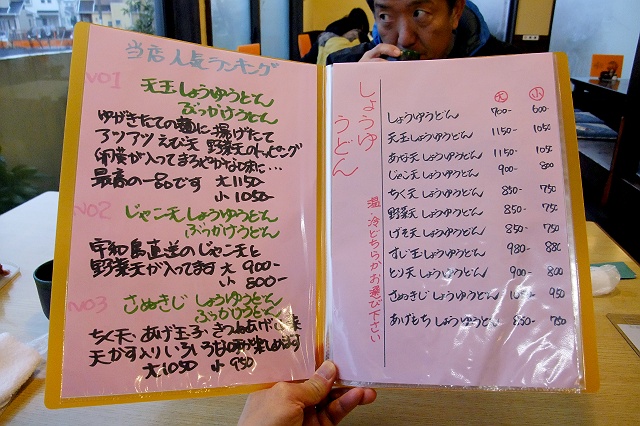 当店人気ランキング
NO1
天玉しょうゆうどん
ぶっかけうどん
ゆがきたての麺に揚げたて
アツアツえび天 野菜天のトッピング
卵黄が入ってまろやかな味に…
最高の一品です 大1150-
小1050-
NO2
じゃこ天しょうゆうどん
ぶっかけうどん
宇和島直送のじゃこ天と
野菜天が入ってます 大900-
小800-
NO3
さぬきじしょうゆうどん
ぶっかけうどん
ちく天・あげ玉子・きつねあげ
天かす入りいろいろな味が楽しめます
大1050 小950
しょうゆうどん
温・冷どちらかお選び下さい
大 小
しょうゆうどん 700- 600-
天玉しょうゆうどん 1150- 1050
あげ天しょうゆうどん 1150- 1050
じゃこ天しょうゆうどん 900- 800
ちく天しょうゆうどん 850- 750
野菜天しょうゆうどん 850- 750
げそ天しょうゆうどん 850- 750
すじ玉しょうゆうどん 980- 880
とり天しょうゆうどん 900- 800
さぬきじしょうゆうどん 1050- 950
あげもちしょうゆうどん 850- 750